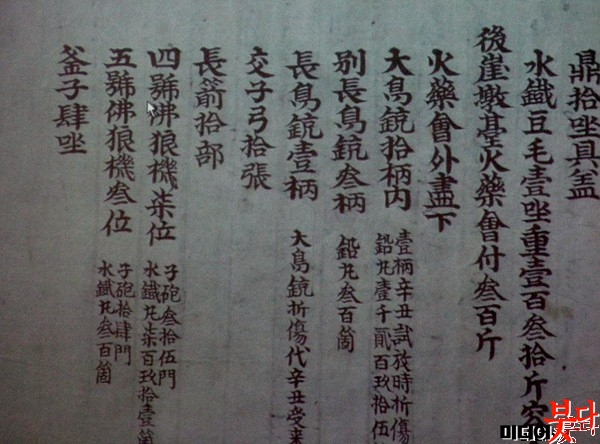 鼎拾坐具盖
水鐵豆毛壹坐重壹百叁拾斤
後崖墩臺火藥會付叁百斤
火藥會外盡下
大鳥銃拾柄內
壹柄辛丑試放時折傷
鉛丸壹千貳百玖拾伍
別長鳥銃叁柄 鉛丸叁百箇
長鳥銃壹柄 大鳥銃折傷代辛丑受来
交子弓拾張
長箭拾部
四號佛狼機柒位
子砲叁拾伍門
水鐵丸柒百玖拾壹箇
五號佛狼機叁位
子砲拾肆門
水鐵丸叁百箇
釜子肆坐
붓다